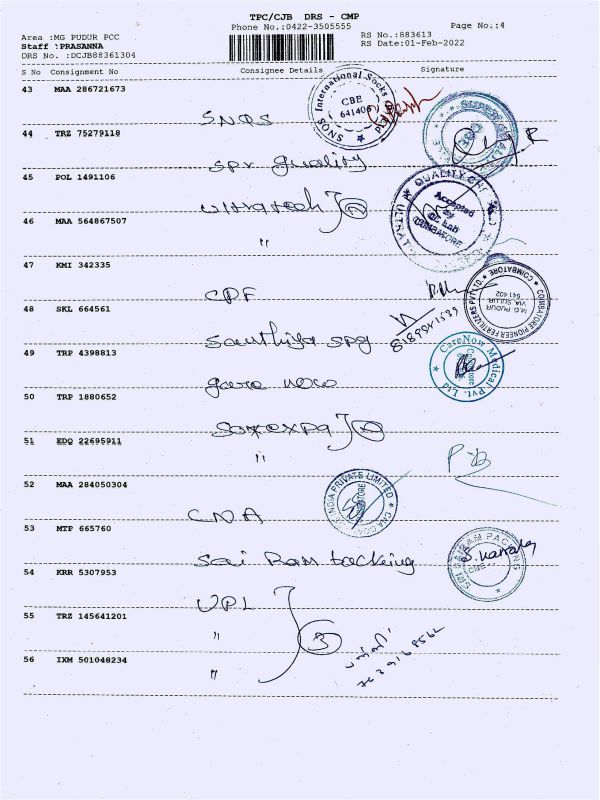 TPC/CJB DRS - CMP
Phone No.:0422-3505555
Page No.:4
Area :MG PUDUR PCC
Staff :PRASANNA
DRS No. :DCJB88361304
RS No.:883613
RS Date:01-Feb-2022
S No Consignment No Consignee Details Signature
43 MAA 286721673
SNQS
SNQS International Socks
CBE
641406
44 TRZ 75279118
spr quality
45 POL 1491106
ultratech 2
QUALITY
Accepted
By
QC Lab
COIMBATORE
46 MAA 564867507
"
47 KMI 342335
CPF
COIMBATORE PIONEER FERTILIZERS PVT LTD.
COIMBATORE
M.G. PUDUR
VIA SULUR
641 402
48 SKL 664561
49 TRP 4398813
care now
CareNow Medical Pvt. Ltd
50 TRP 1880652
51 EDQ 22695911
"
52 MAA 284050304
CNA
INDIA PRIVATE LIMITED
53 MTP 665760
Sai Ram Packing
SRI SAIRAM PACKING
54 KRR 5307953
UPL
55 TRZ 145641201
"
3
56 IXM 501048234
"